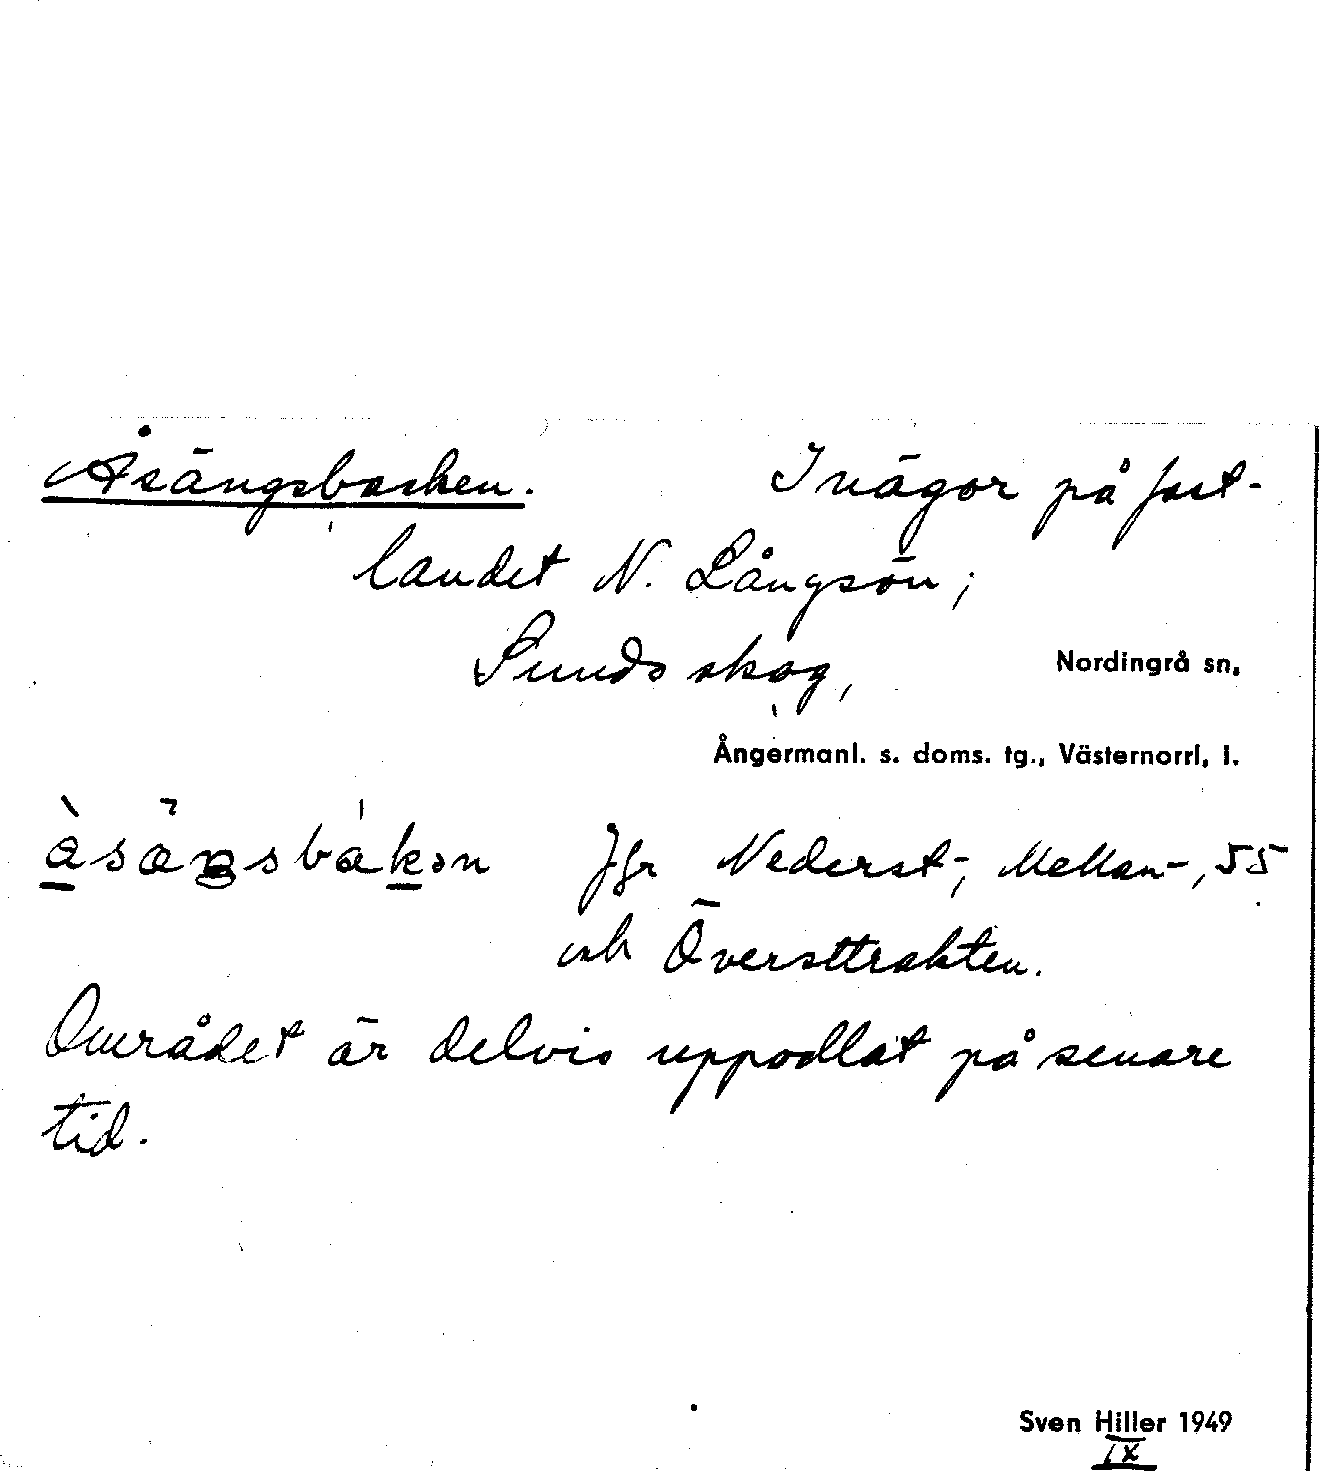 Åsängsbacken. Inägor på fast-
landet N. Långsön;
Sundsskog, Nordingrå sn,
Ångermanl. s. doms. tg., Västernorrl. l.
Jfr Nederst-, Mellan-, 55
och Översttrakten.
Området är delvis uppodlat på senare
tid.
Sven Hiller 1949
IX